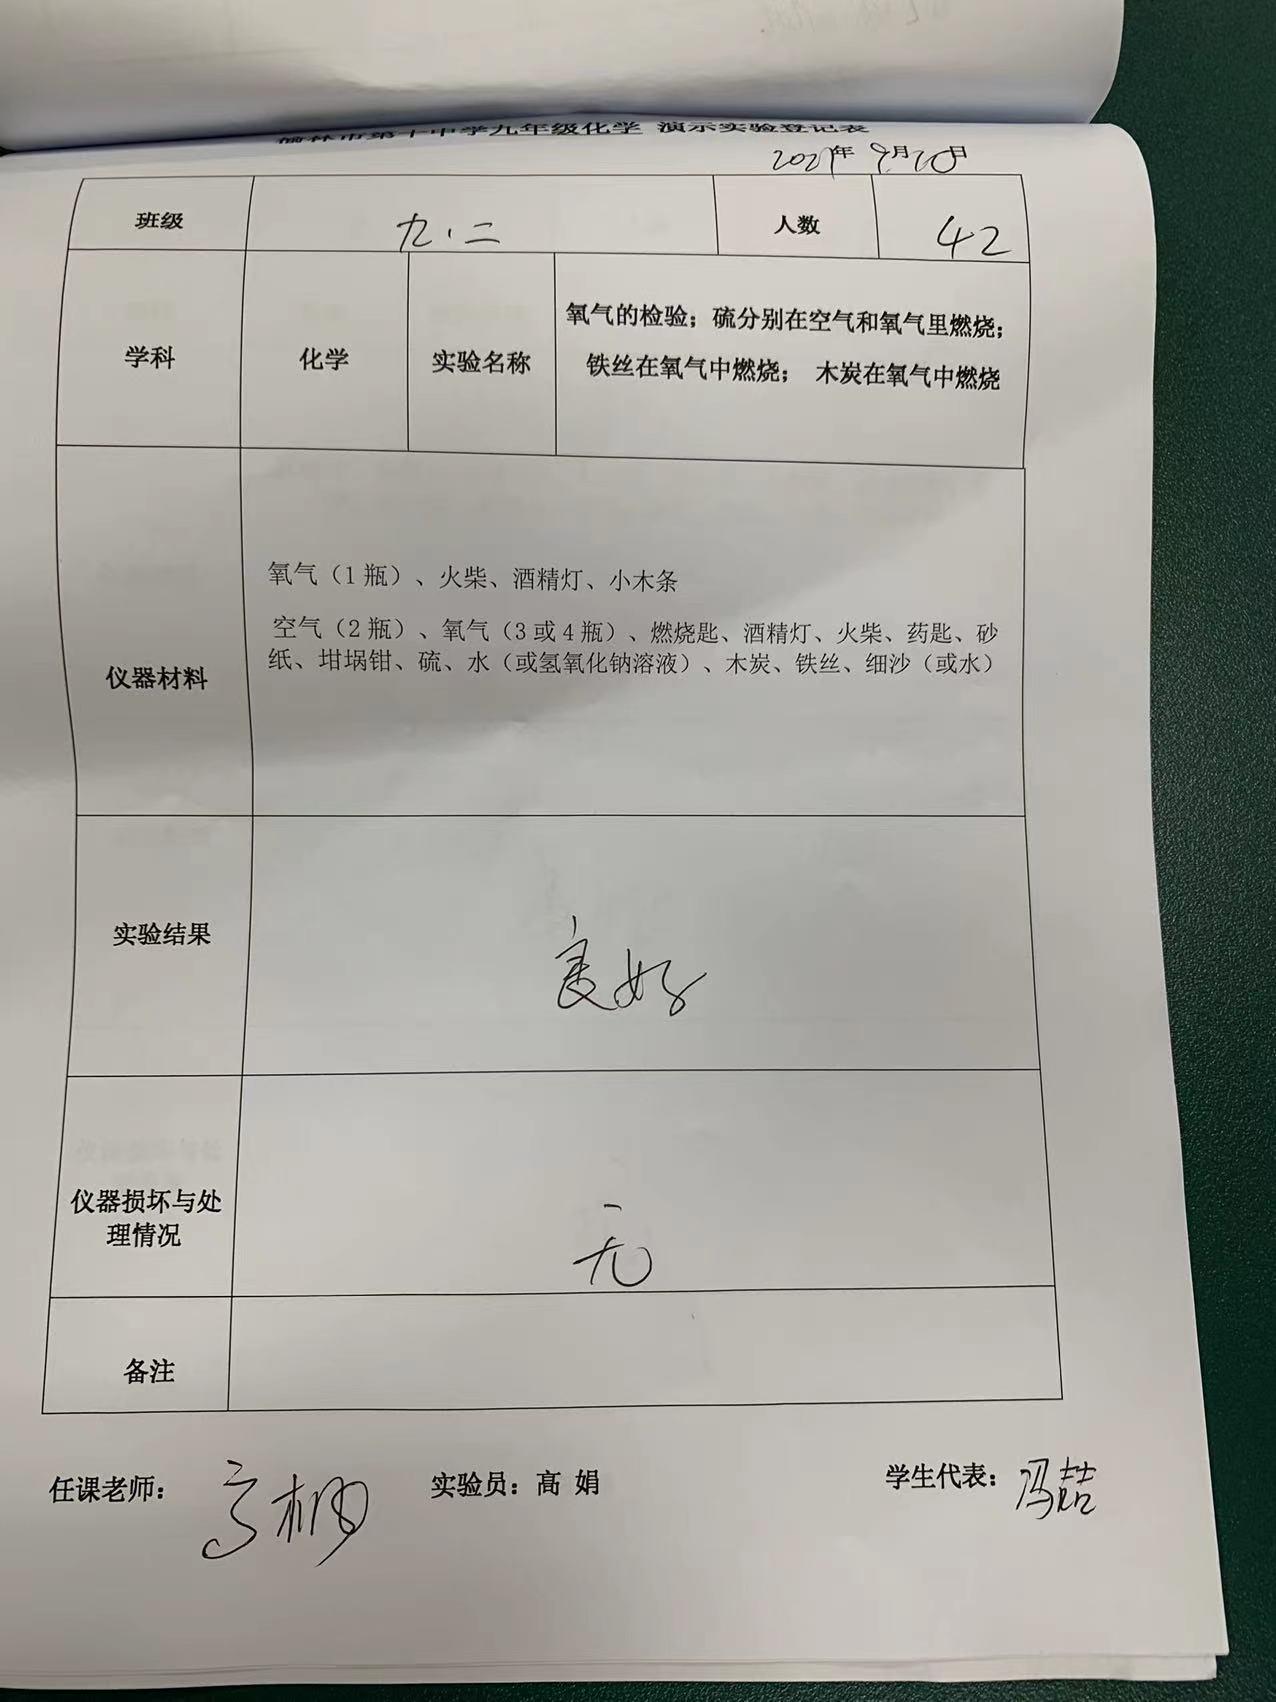 榆林市第十中学九年级化学 演示实验登记表
2021年9月20日
班级 九.二 人数 42
学科 化学 实验名称 氧气的检验；硫分别在空气和氧气里燃烧；
铁丝在氧气中燃烧； 木炭在氧气中燃烧
仪器材料
氧气（1瓶）、火柴、酒精灯、小木条
空气（2瓶）、氧气（3或4瓶）、燃烧匙、酒精灯、火柴、药匙、砂
纸、坩埚钳、硫、水（或氢氧化钠溶液）、木炭、铁丝、细沙（或水）
实验结果 良好
仪器损坏与处
理情况
无
备注
任课老师： 高 实验员：高 娟 学生代表：冯喆